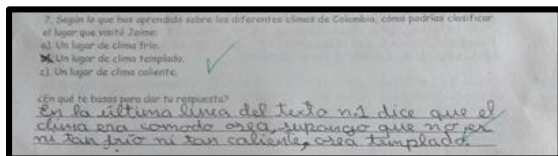 7. Según lo que has aprendido sobre los diferentes climas de Colombia, cómo podrías clasificar
el lugar que visitó Jaime:
a). Un lugar de clima frío.
Un lugar de clima templado.
c). Un lugar de clima caliente.
¿En qué te basas para dar tu respuesta?
En la última linea del texto n.1 dice que el
clima era comodo osea, supongo que no es
ni tan frio ni tan caliente, osea templado.